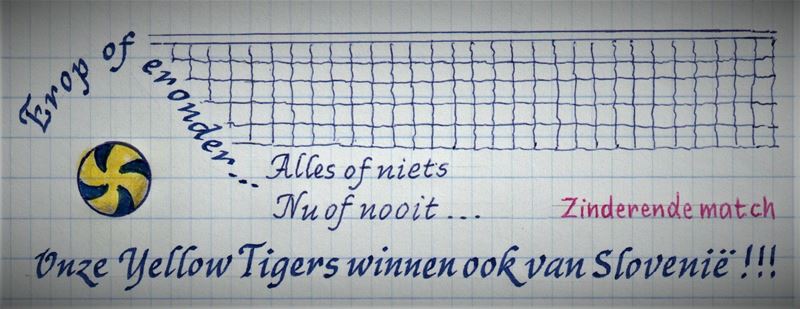 Erop of eronder...
Alles of niets
Nu of nooit ...
Zinderende match
Onze Yellow Tigers winnen ook van Slovenië !!!